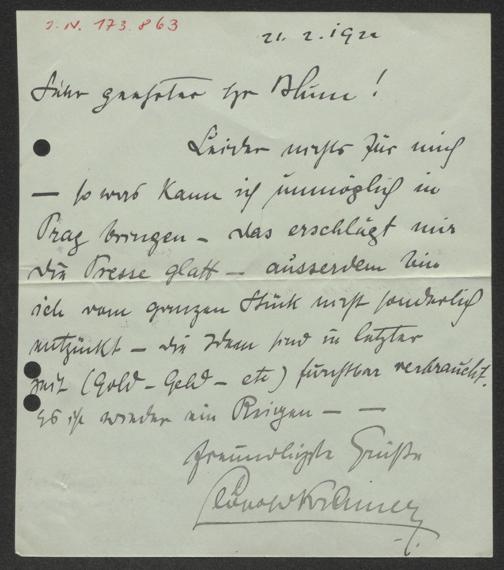 J.N. 173.863
21.2.1922
Sehr geehrter Hr Blum!
Leider nichts für mich
– so was kann ich unmöglich in
Prag bringen – das erschlägt mir
die Presse glatt – ausserdem bin
ich vom ganzen Stück nicht sonderlich
entzückt – die Ideen sind in letzter
Zeit (Gold – Geld – etc) furchtbar verbraucht.
Es ist wieder ein Reigen – –
freundlichste Grüße
Leopold Kramer